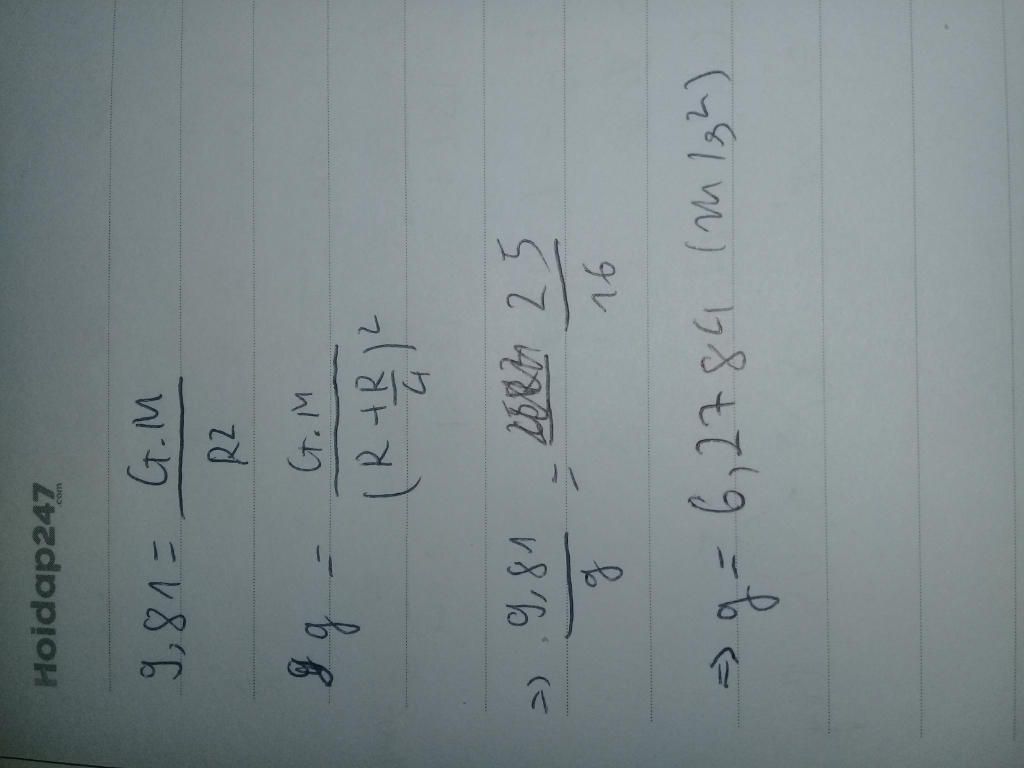 Hoidap247
.com
9,81 = G.M / R2
g = G.M / (R + R/4)²
=> 9,81 / g = 25 / 16
=> g = 6,2784 (m/s²)